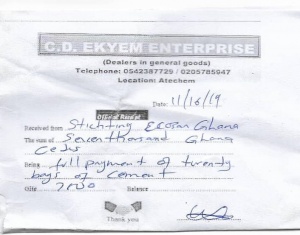 C.D. EKYEM ENTERPRISE
(Dealers in general goods)
Telephone: 0542387729 / 0205785947
Location: Atechem
Date: 11/16/19
Official Receipt
Received from Stichting Ecosan Ghana
The sum of Seven thousand Ghana
Cedis
Being full payment of twenty
bags of cement
GH¢ Balance
Thank you